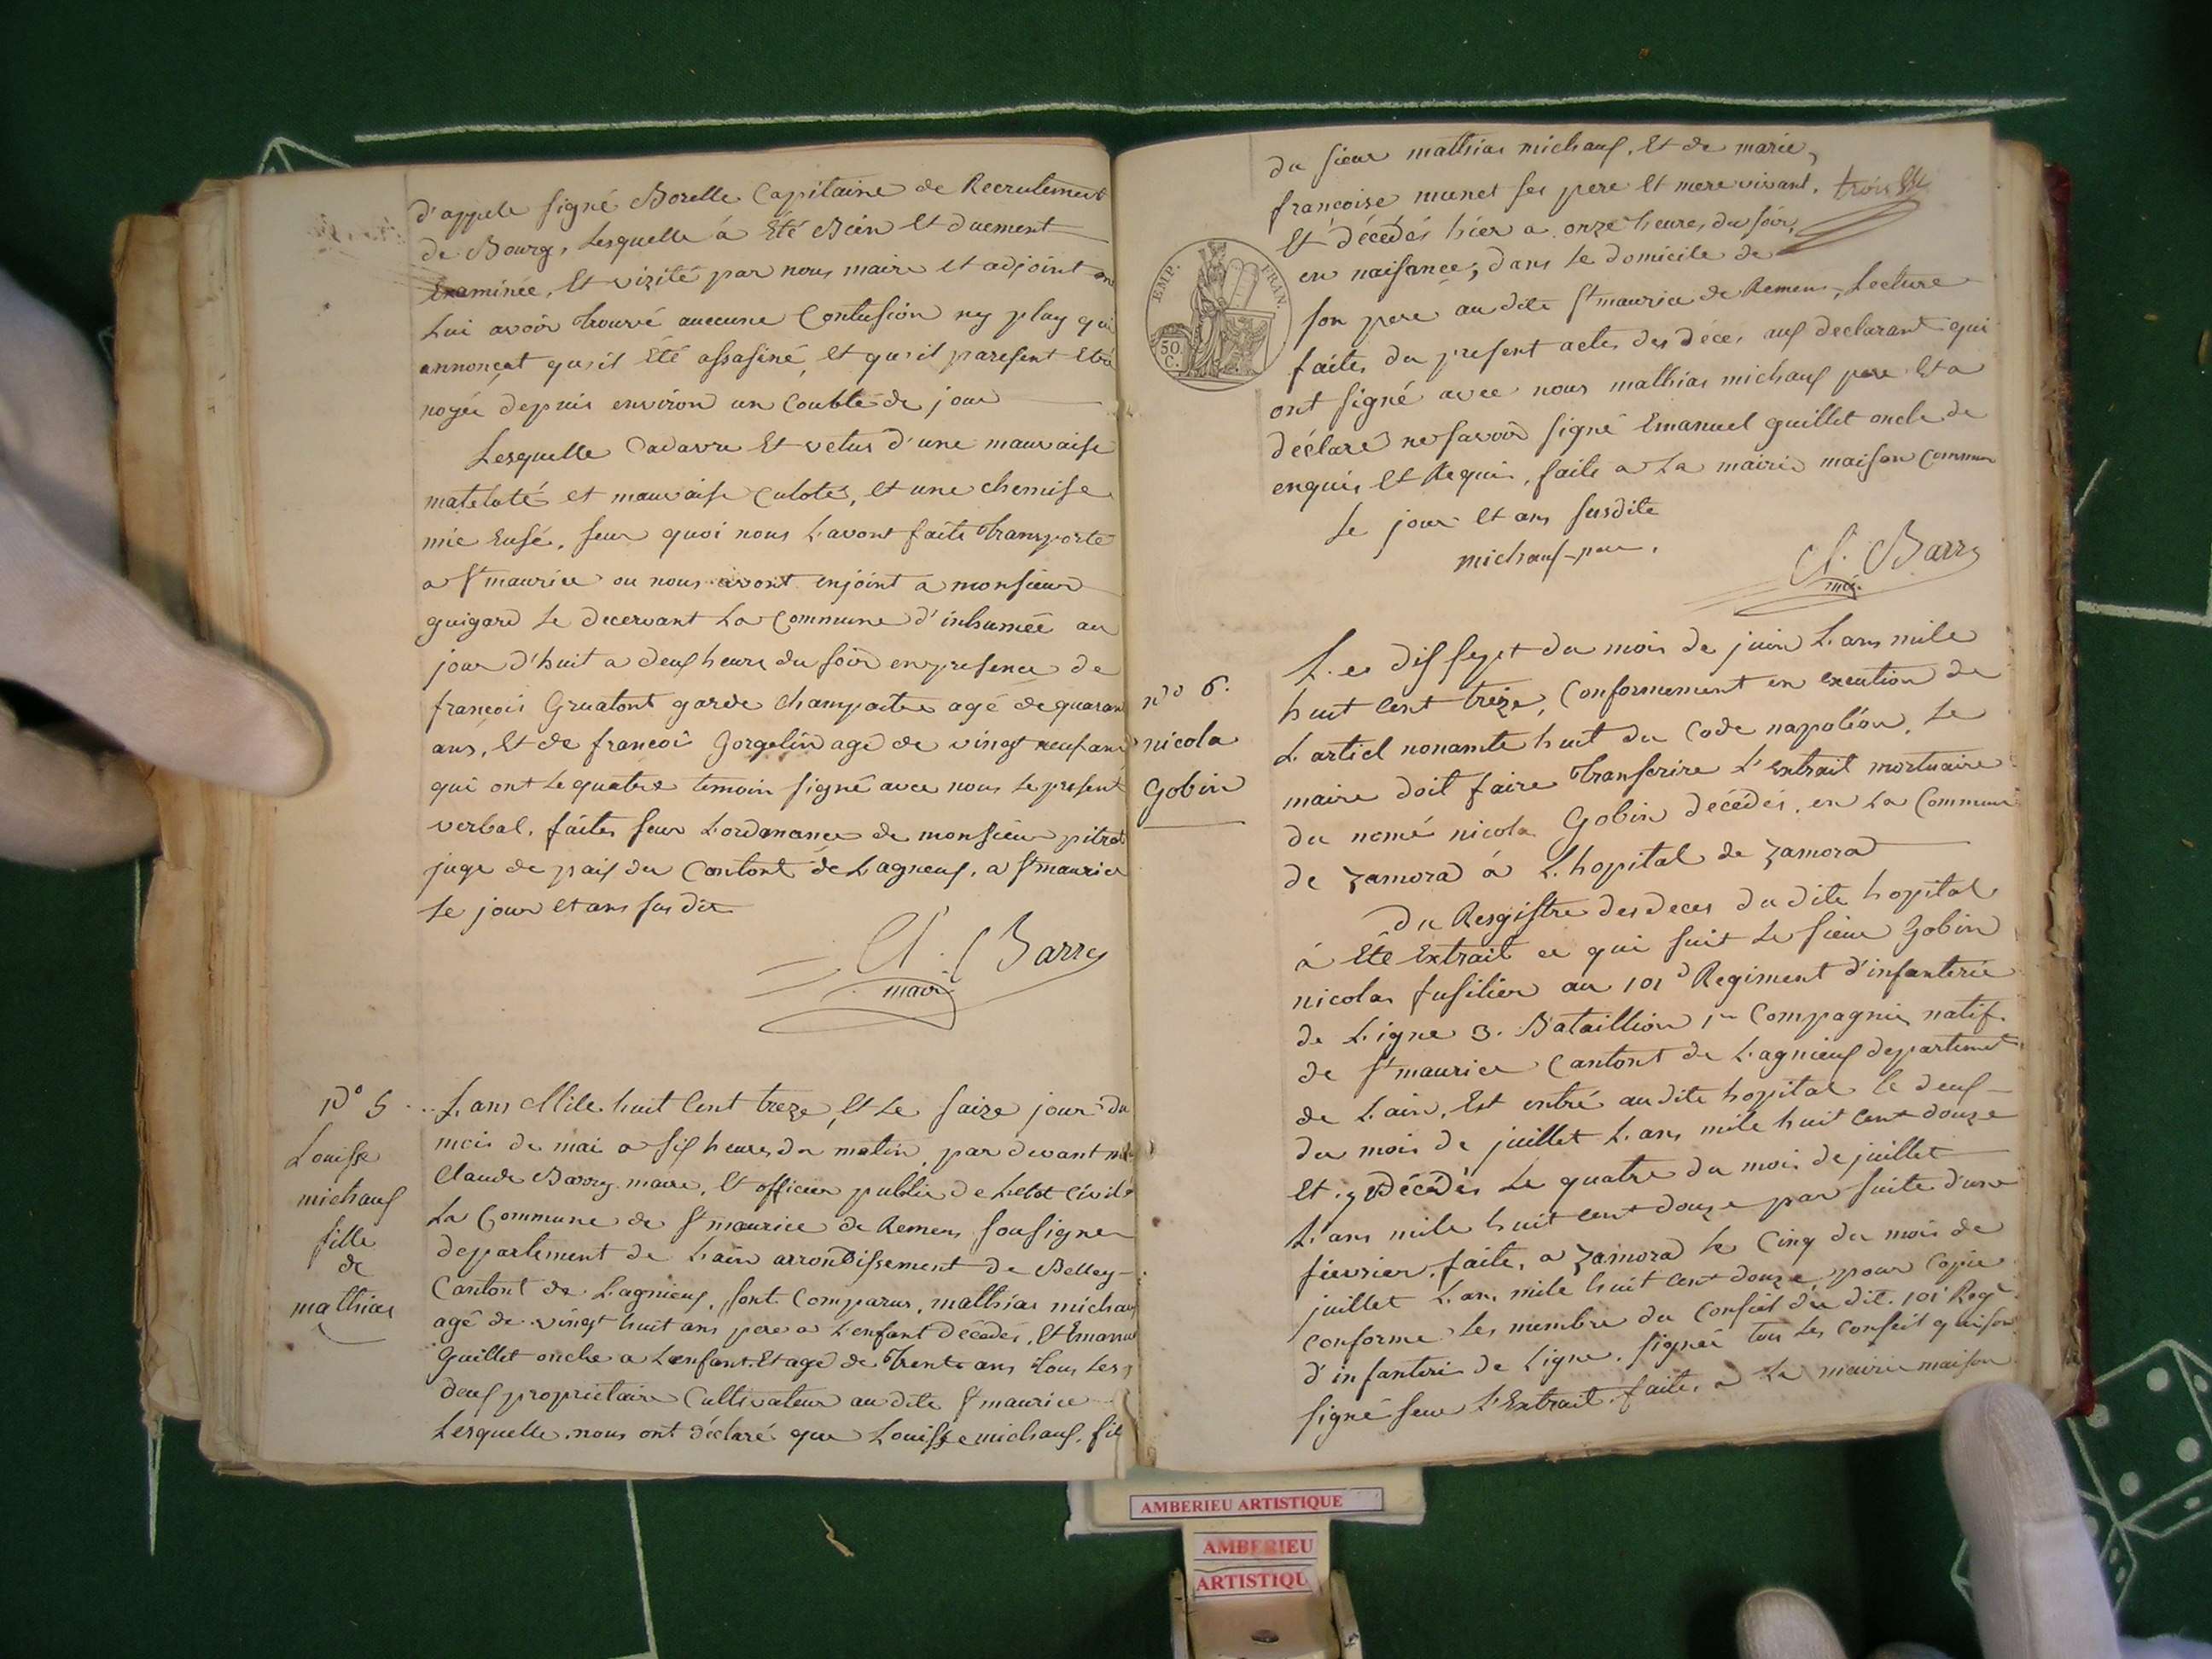 d'appele signé Borelle Capitaine de Recrutement
de Bourg, Lesquelle à Été Bien Et duement
Examinée, Et vizité par nous maire et adjoint on
Lui avoir trouvé auccune Contusion ny play qui
annonçat qu'il Été assasiné, Et qu'il paresent Etre
noyée depuis environ un Couble de jour
Lesquelle Cadavre Et vetus d'une mauvaise
mateloté et mauvaise Culote, Et une chemise
mie Usé, seur quoi nous L'avont faite Transporte
a St maurice ou nous avont enjoint a monsieur
guigard Le decervant La Commune d'inhumée au
jour d'huit a deux heure du soir en presence de
françois Gruatont garde Champaitre agé de quaran
ans, Et de françoi Gorgelin agé de vingt neuf ans
qui ont Le quatre temoin signé avec nous Le present
verbal, faites seur L'ordonance de monsieur pitrat
juge de paix du Contont de Lagneux, a St maurice
Le jour et ans sus dit
Cl. Barry
mair
N° 5
Louisse
michaux
fille
de
mathias
L'ans Mile huit Cent treze, Et Le saize jour du
mois de mai a six heures du matin, par devant nous
Claude Barry maire, Et officier public de Letat Civile
La Commune de St maurice de Remens sousigne
departement de Lain arrondissement de Belley
Contont de Lagnieux, sont Comparus, mathias michaux
agé de vingt huit ans pere a L'enfant décédés, Et Emanuel
Guillet oncle a Lenfant Et agé de Trente ans Tous Les
deux propriétaire Cultivateur au dite St maurice
Lesquelle nous ont déclaré que Louisse michaux, fil
du sieur mathias michaux, Et de marie
françoise munet ses pere Et mere vivant,
Et décédés hier a onze heures du soir,
en naisance, dans Le domicile de
son pere au dite St maurice de Remens, Lecture
faites du present actes des déces aux declarant qui
ont signé avec nous mathias michaux pere Et a
déclaré ne savoir signé Emanuel guillet oncle de
enquis Et Requis, faite a La mairie maison Commun
Le jour Et ans susdite
michaux pere.
Cl. Barry
EMP. FRAN.
50
C.
n° 6.
nicola
Gobin
Le dix sept du mois de juin L'ans mile
huit Cent treze, Conformement en execution de
L'articl nonante huit du Code napoléon, Le
maire doit faire Transcrire L'Extrait mortuaire
du nomé nicola Gobin décédés, en La Commune
de Zamora à L'hopital de Zamora
Du Resgistre des deces du dite hopital
à Eté Extrait ce qui suit Le sieur Gobin
nicolas fusilier au 101e Regiment d'infanterie
de Ligne 3. Bataillion 1re Compagnie natif
de St maurice Cantont de Lagnieux departement
de Lain, Est entré au dite hopital le deux
du mois de juillet L'ans mile huit Cent douze
Et y Décédés Le quatre du mois de juillet
L'ans mile huit Cent douze par suite d'une
fievrier, faite, a Zamora le Cinq du mois de
juillet L'ans mile huit Cent douze pour Copie
conforme les membre du Conseil du dit. 101e Regt
d'infanteri de Ligne. signée tous Les Conseil qui son
signé seur L'Extrait. faites a La mairie maison
AMBERIEU ARTISTIQUE
AMBERIEU
ARTISTIQU